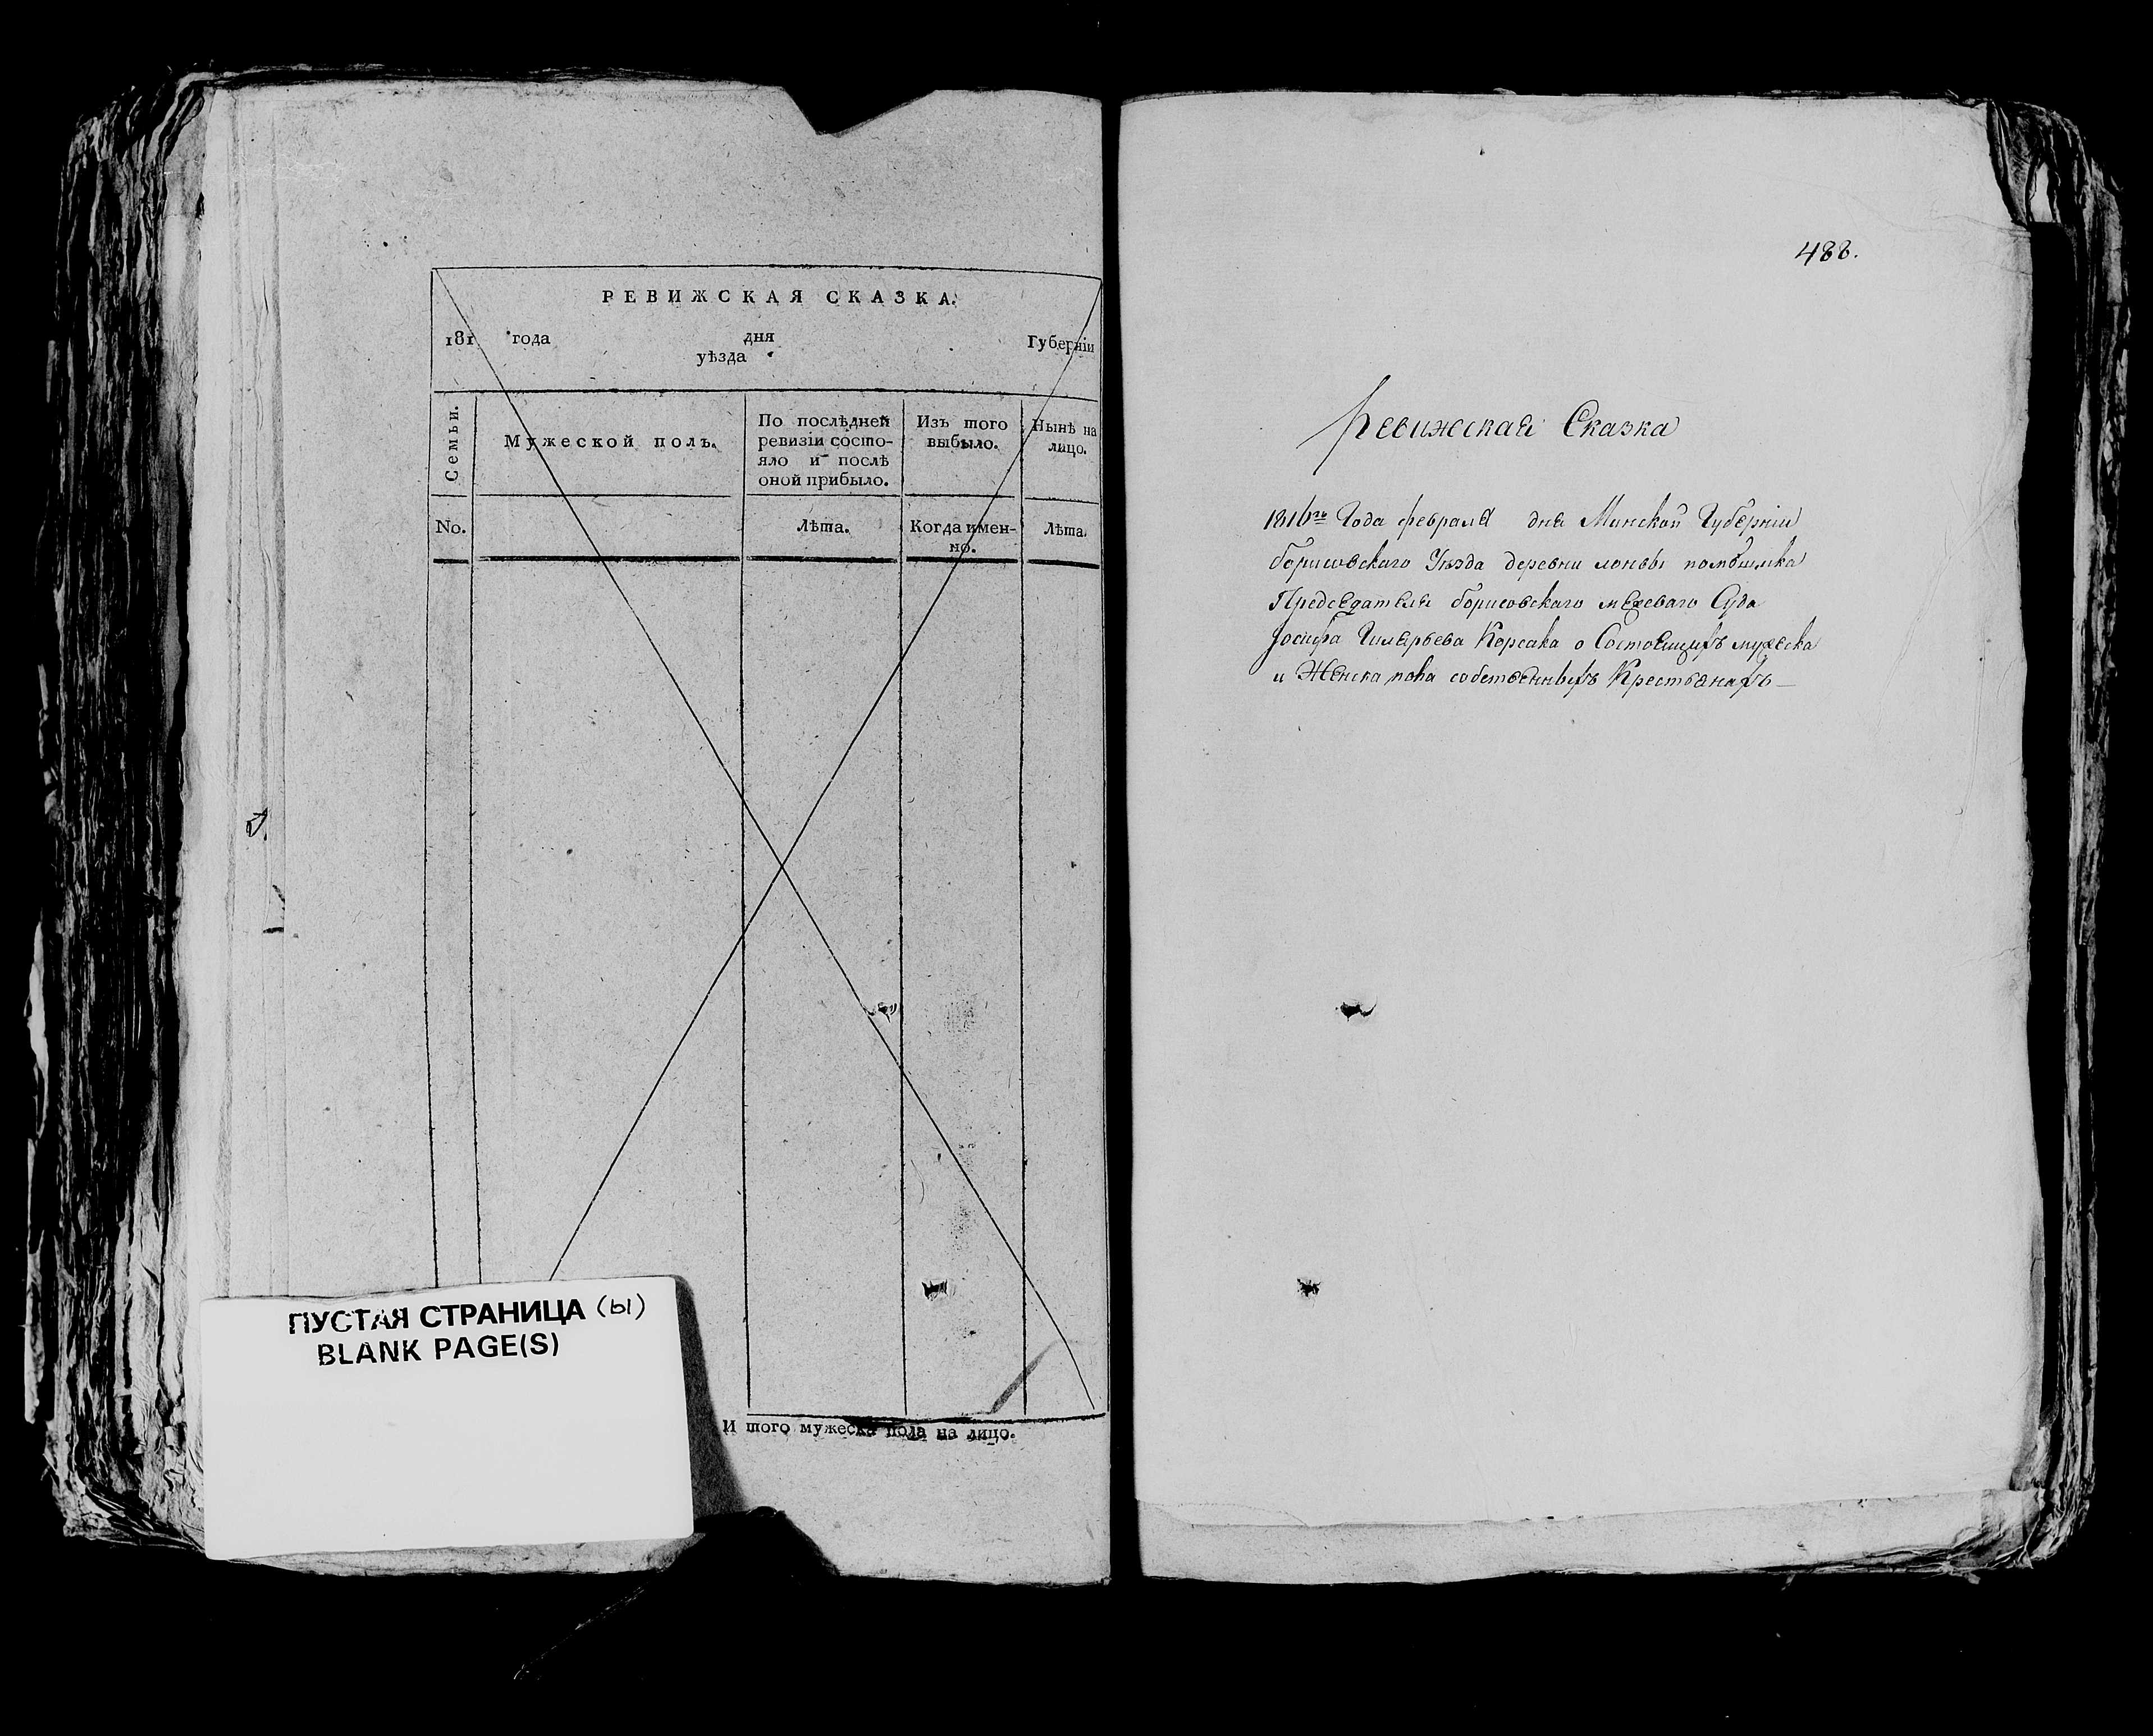 РЕВИЖСКАЯ СКАЗКА.
181 года дня Губерніи
уѣзда
Семьи.
Мужеской полъ.
По послѣдней ревизіи состо-
яло и послѣ оной прибыло.
Изъ того выбыло.
Нынѣ на лицо.
No.
Лѣта.
Когда имен-
но.
Лѣта.
И того мужеска пола на лицо.
ПУСТАЯ СТРАНИЦА (ы)
BLANK PAGE(S)
488.
Ревижская Сказка
1816го Года февраля дня Минской Губерніи
Борисовскаго Уѣзда деревни помѣщика
Председателя борисовскаго межеваго Суда
Іосифа Корсака о Состоящихъ мужеска
и Женска пола собственныхъ Крестьянахъ